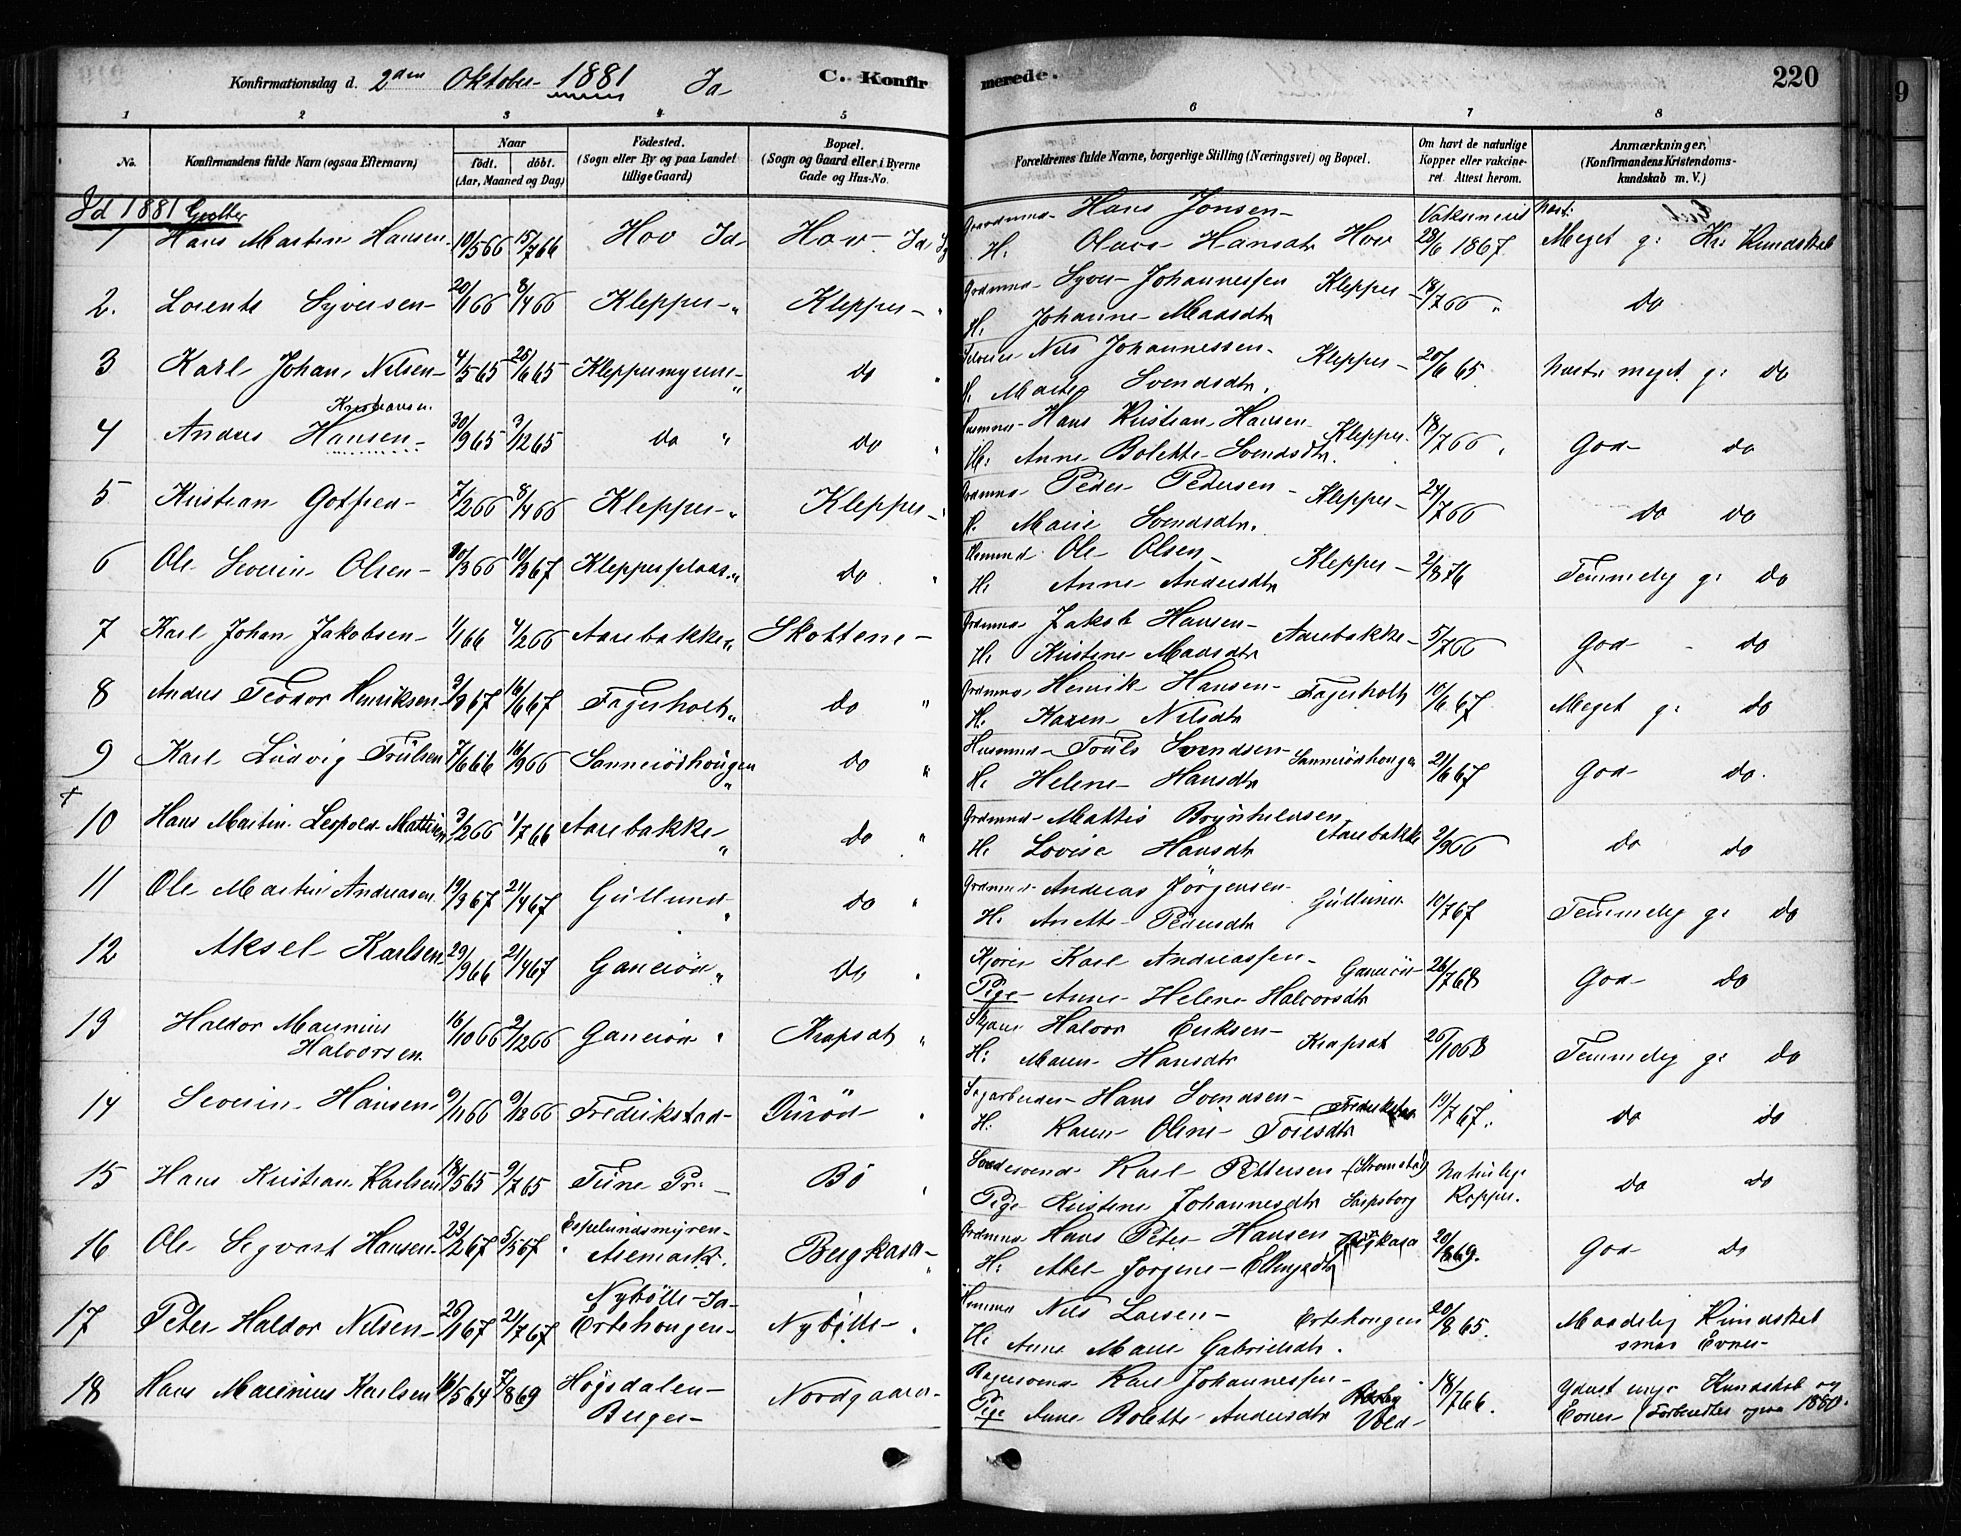 Konfirmationsdag d. 2den Oktober 1881 Id C. Konfirmerede. 220
1 2 3 4 5 6 7 8
No. Konfirmandens fulde Navn (ogsaa Efternavn) Naar født. døbt. (Aar, Maaned og Dag) Fødested. (Sogn eller By og paa Landet tillige Gaard) Bopæl. (Sogn og Gaard eller i Byerne Gade og Hus-No. Forældrenes fulde Navne, borgerlige Stilling (Næringsvei) og Bopæl. Om havt de naturlige Kopper eller vakcineret. Attest herom. Anmærkninger. (Konfirmandens Kristendomskundskab m. V.)
Id 1881 Gutter
1 Hans Martin Hansen 10/5 66 15/7 66 Hov Id Hov Id Gaardmd. Hans Jonsen H. Olava Hansdtr Hov 28/6 1867 Meget g: Kr. Kundskab
2. Lorents Syversen 20/1 66 8/4 66 Klepper Klepper Grdmnd. Syver Johannessen H. Johanne Maasdtr Klepper 18/7 66 do
3 Karl Johan Nilsen 4/5 65 25/6 65 Kleppermyren do Nils Johannessen H. Svendsdtr. Klepper 20/6 65 Næst. meget g: do
4 Anders Kristiansen Hansen 30/9 65 3/12 65 do do Husmnd Hans Kristian Hansen H: Anne Bolette Svendsdtr. Klepper 18/7 66 God do
5 Kristian Gotfred 7/2 66 8/4 66 Klepper Klepper Grdmnd Peder Pedersen H. Marie Svendsdtr. Klepper 24/7 66 do do
6 Ole Severin Olsen 10/3 67 Klepperplads do Ole Olsen H: Anne Andersdtr Klepper 2/8 76 Temmelig g: do
7 Karl Johan Jakobsen 1/1 66 4/2 66 Aarebakke Skottene Grdmnd Jakob Hansen H. Kristine Maasdtr Aarebakke 5/7 66 God do
8 Anders Teodor Henriksen 3/3 67 16/6 67 Fagerholt do Grdmnd Henrik Hansen H: Karen Nilsdtr Fagerholt 10/6 67 Meget g: do
9 Karl Ludvig Trulsen 7/6 66 16/9 66 Sannerødhougen do Husmnd Truls Svendsen H. Helene Hansdtr Sannerødhougen 21/6 67 God do.
+
10 Hans Martin Leopold Mattisen 3/2 66 1/7 66 Aarebakke do Grdmnd Mattis Brynhelsen H. Lovise Hansdtr Aarebakke 2/9 66 do do
11 Ole Martin Andreasen 19/3 67 21/4 67 Gullund do Grdmnd Andreas Jørgensen H. Anette Pedersdtr Gullund 10/7 67 Temmelig g: do
12 Aksel Karlsen 29/9 66 21/4 67 Ganerød do Karl Andreassen Pige Anne Helene Halvorsdtr Ganerød 26/7 68 God do
13 Haldor Maurinius Halvorsen 16/10 66 2/12 66 Ganerød Krapsdt Halvor Eriksen H: Maren Hansdtr Krapsdt 26/10 68 Temmelig g: do
14 Severin Hansen 9/11 66 9/12 66 Fredrikstad Burød Sagarbeider Hans Svendsen H. Karen Oline Toresdtr Fredrikstad 19/7 67. do do
15 Hans Kristian Karlsen 18/5 65 9/7 65 Tune Pr: Bø Karl Pettersen (Strømstad) Pige Kristine Johannesdtr Sarpsborg Naturlige Kopper. do do
16 Ole Segvart Hansen 23/2 67 5/5 67 Espelundsmyren Aremark. Bergkasa Grdmnd Hans Peter Hansen H: Abel Jørgine Ellingsdtr Bergkasa 20/8 69. God do
17 Peter Haldor Nilsen 26/1 67 21/7 67 Nybølle Id Ertehougen Nybølle Nils Larsen H: Anne Marie Gabrielsdtr. Ertehougen 20/8 65. Maadelig Kundskab smaa Evner
18 Hans Maurinius Karlsen 16/5 64 7/8 69 Høgsdalen Berger Nordgaard Karl Johannessen Pige Anne Bolette Andersdtr Vold 18/7 66. Yderst ringe Kundskab og Evner (Forberedtes ogsaa 1880.